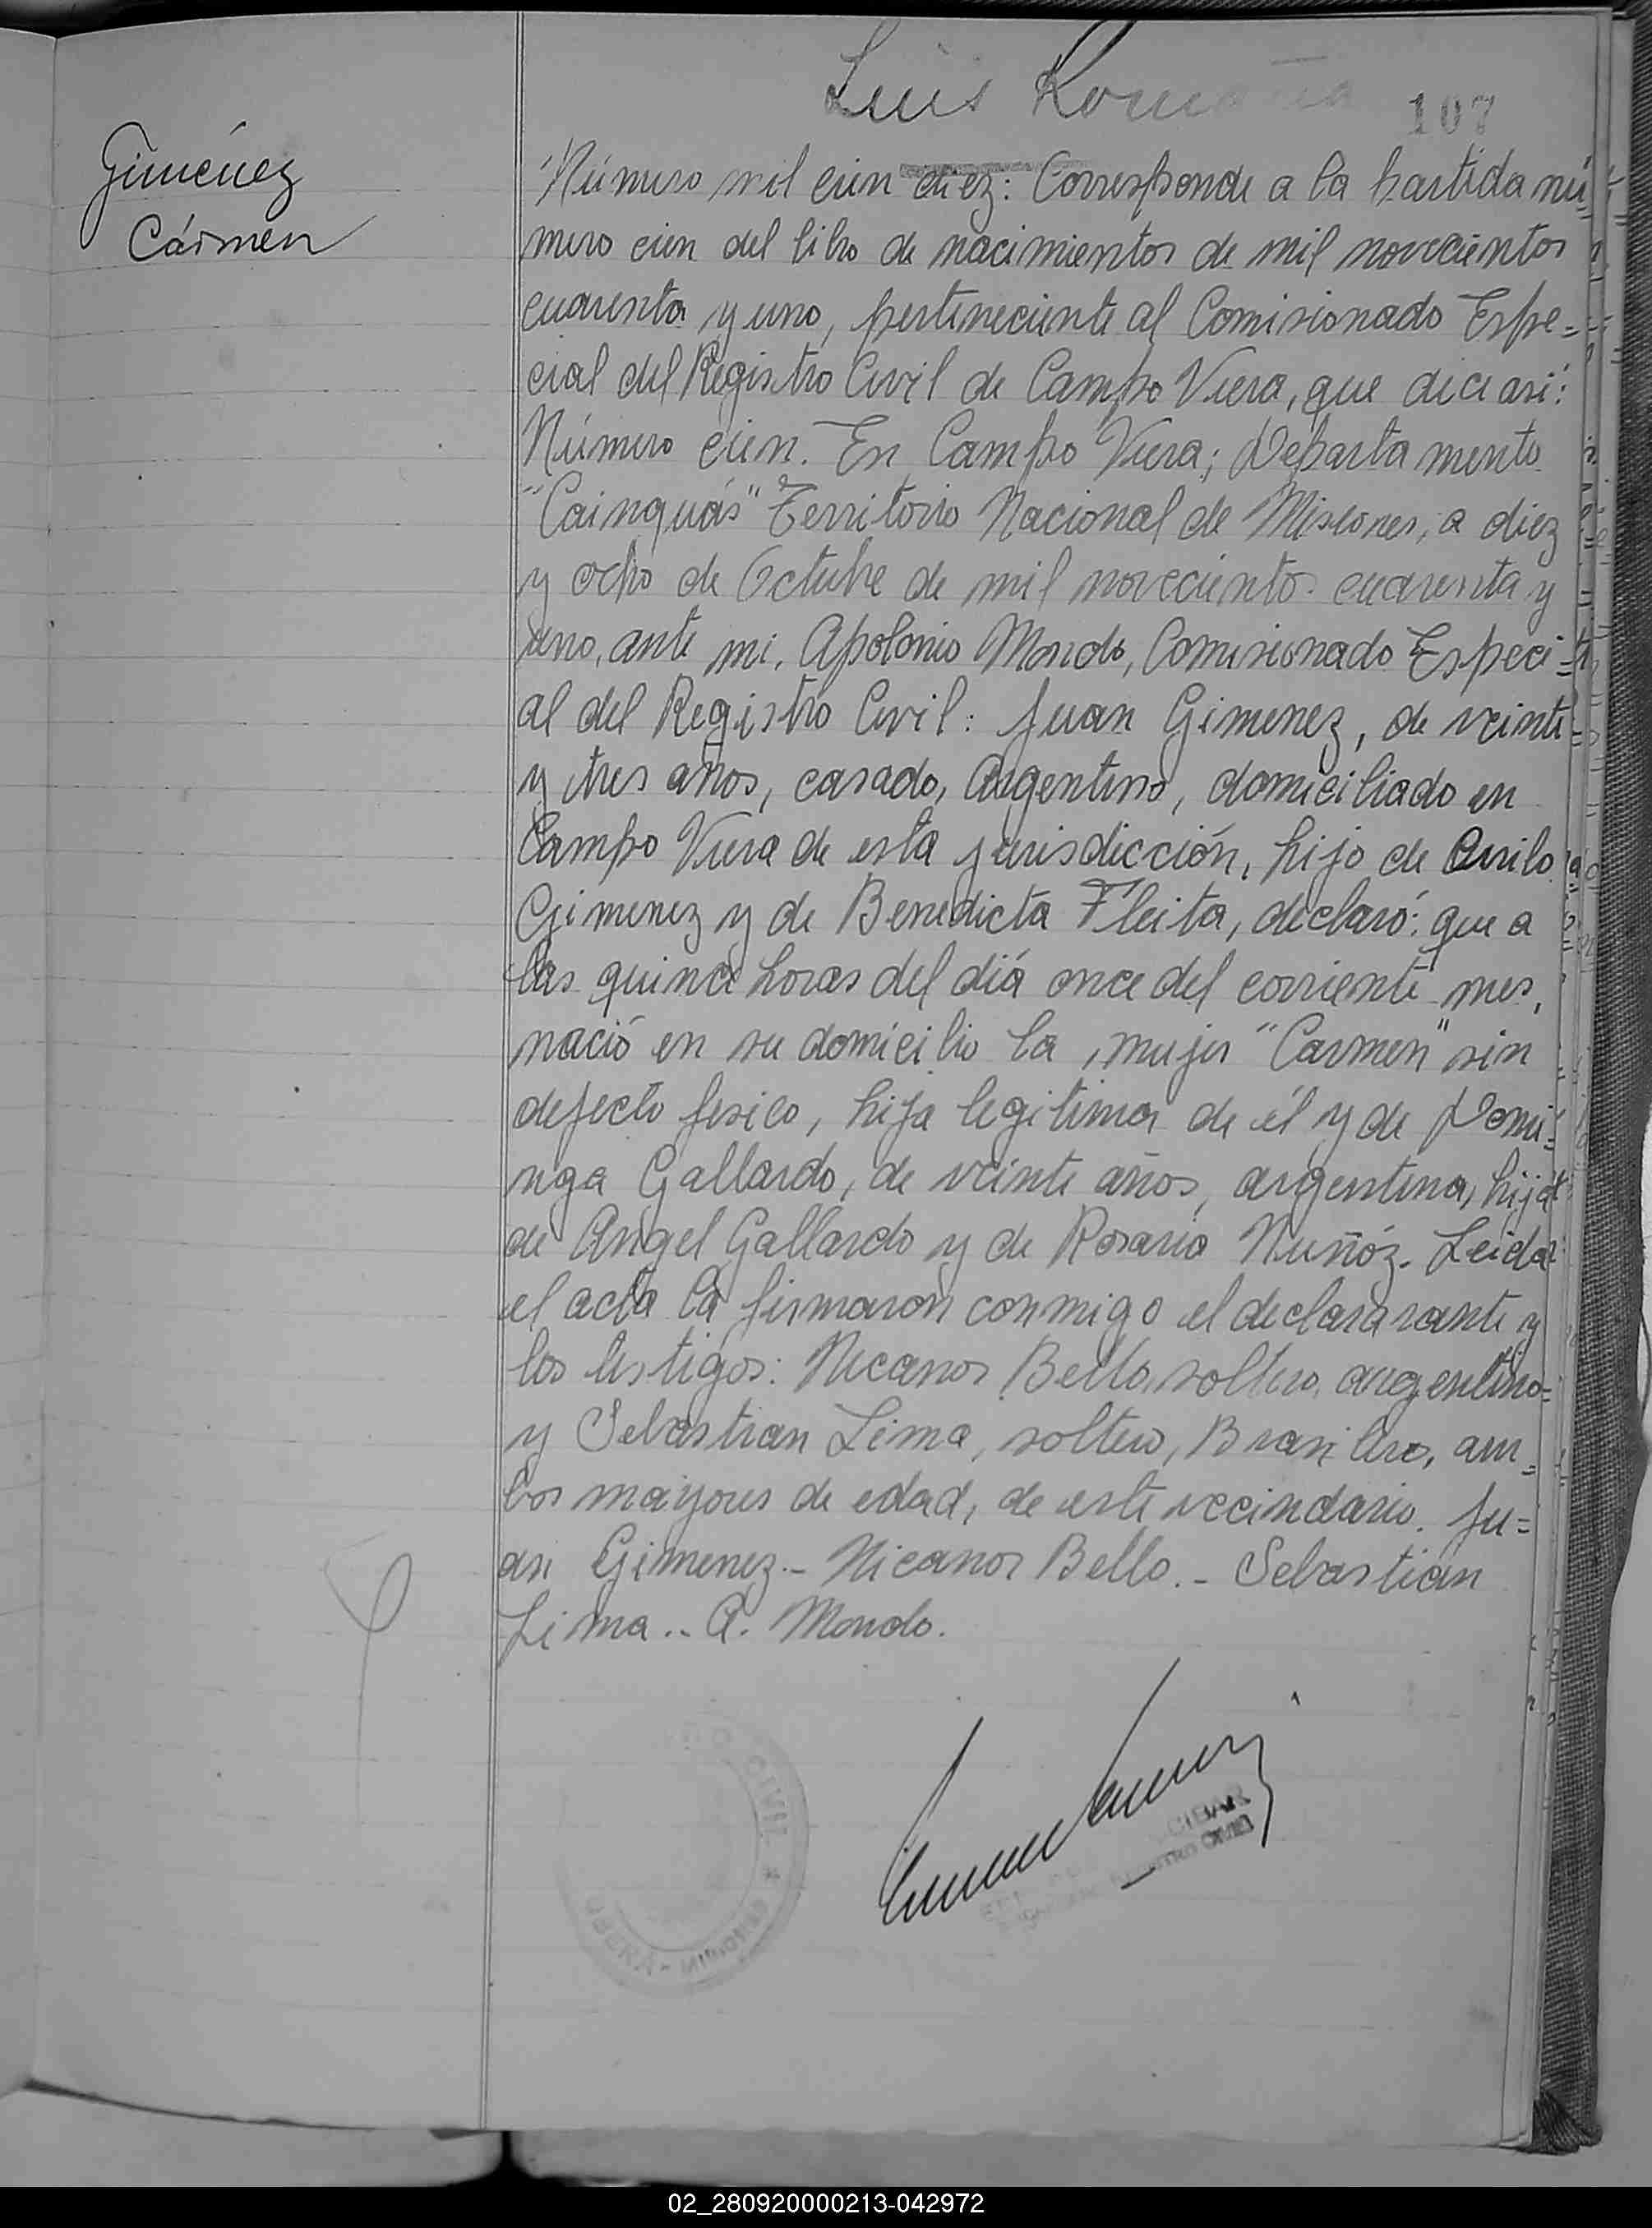 Luis
107
Giménez
Cármen
Número mil cien diez: Corresponde a la partida nú=
mero cien del libro de nacimientos de mil novecientos
cuarenta y uno, perteneciente al Comisionado Espe=
cial del Registro Civil de Campo Viera, que dice así:
Número cien. En Campo Viera; Departamento
"Cainguás" Territorio Nacional de Misiones, a diez
y ocho de Octubre de mil novecientos cuarenta y
uno, ante mi, Apolonio Mondo, Comisionado Especi=
al del Registro Civil: Juan Gimenez, de veinte
y tres años, casado, Argentino, domiciliado en
Campo Viera de esta jurisdicción, hijo de
Gimenez y de Benedicta Fleita, declaró: que a
las quince horas del diá once del corriente mes,
nació en su domicilio la mujer "Carmen" sin
defecto fisico, hija legitima de él y de Domi=
nga Gallardo, de veinte años, argentina, hija
de Angel Gallardo y de Rosario Nuñóz. Leida
el acta la firmaron conmigo el declararante y
los testigos: Nicanor Bello, soltero, argentino=
y Sebastian Lima, soltero, Brasilero, am=
bos mayores de edad, de este vecindario. Ju=
an Gimenez.- Nicanor Bello.- Sebastian
Lima.. A. Mondo.
CIVIL
OBERÁ - MISIONES
REGISTRO CIVIL
02_280920000213-042972